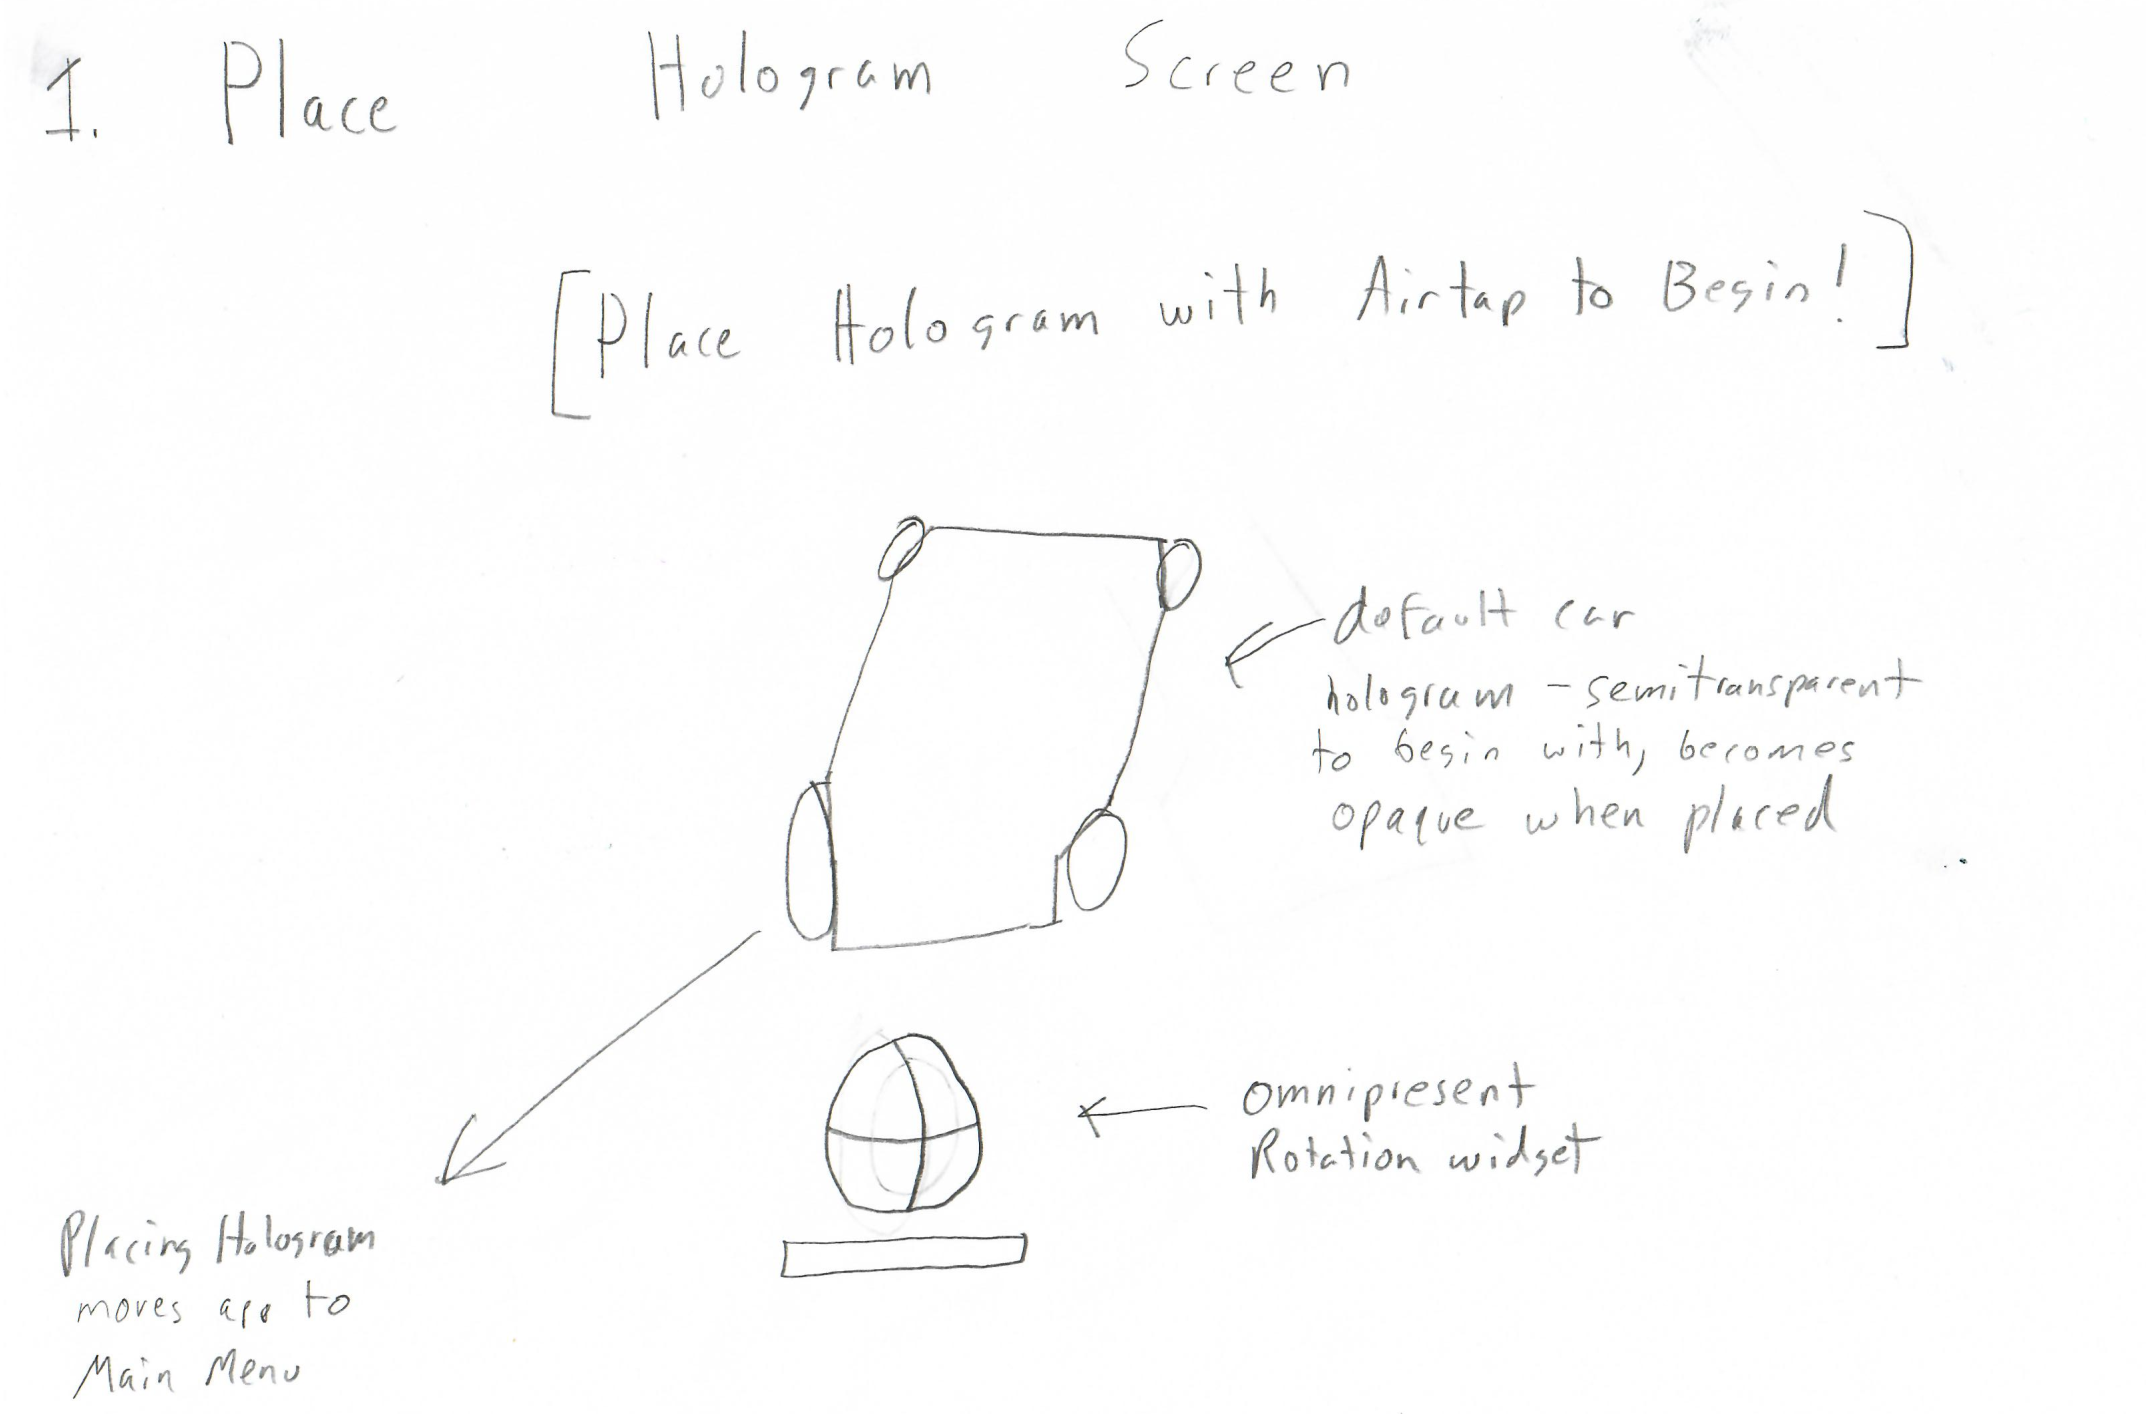 1. Place Hologram Screen
[Place Hologram with Airtap to Begin!]
default car
hologram - semitransparent
to begin with, becomes
opaque when placed
omnipresent
Rotation widget
Placing Hologram
moves app to
Main Menu